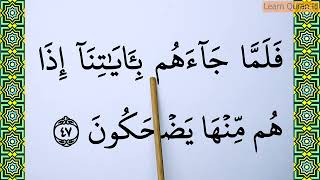 Learn Quran id
فَلَمَّا جَآءَهُم بِـَٔايَـٰتِنَآ إِذَا
هُم مِّنْهَا يَضْحَكُونَ ٤٧